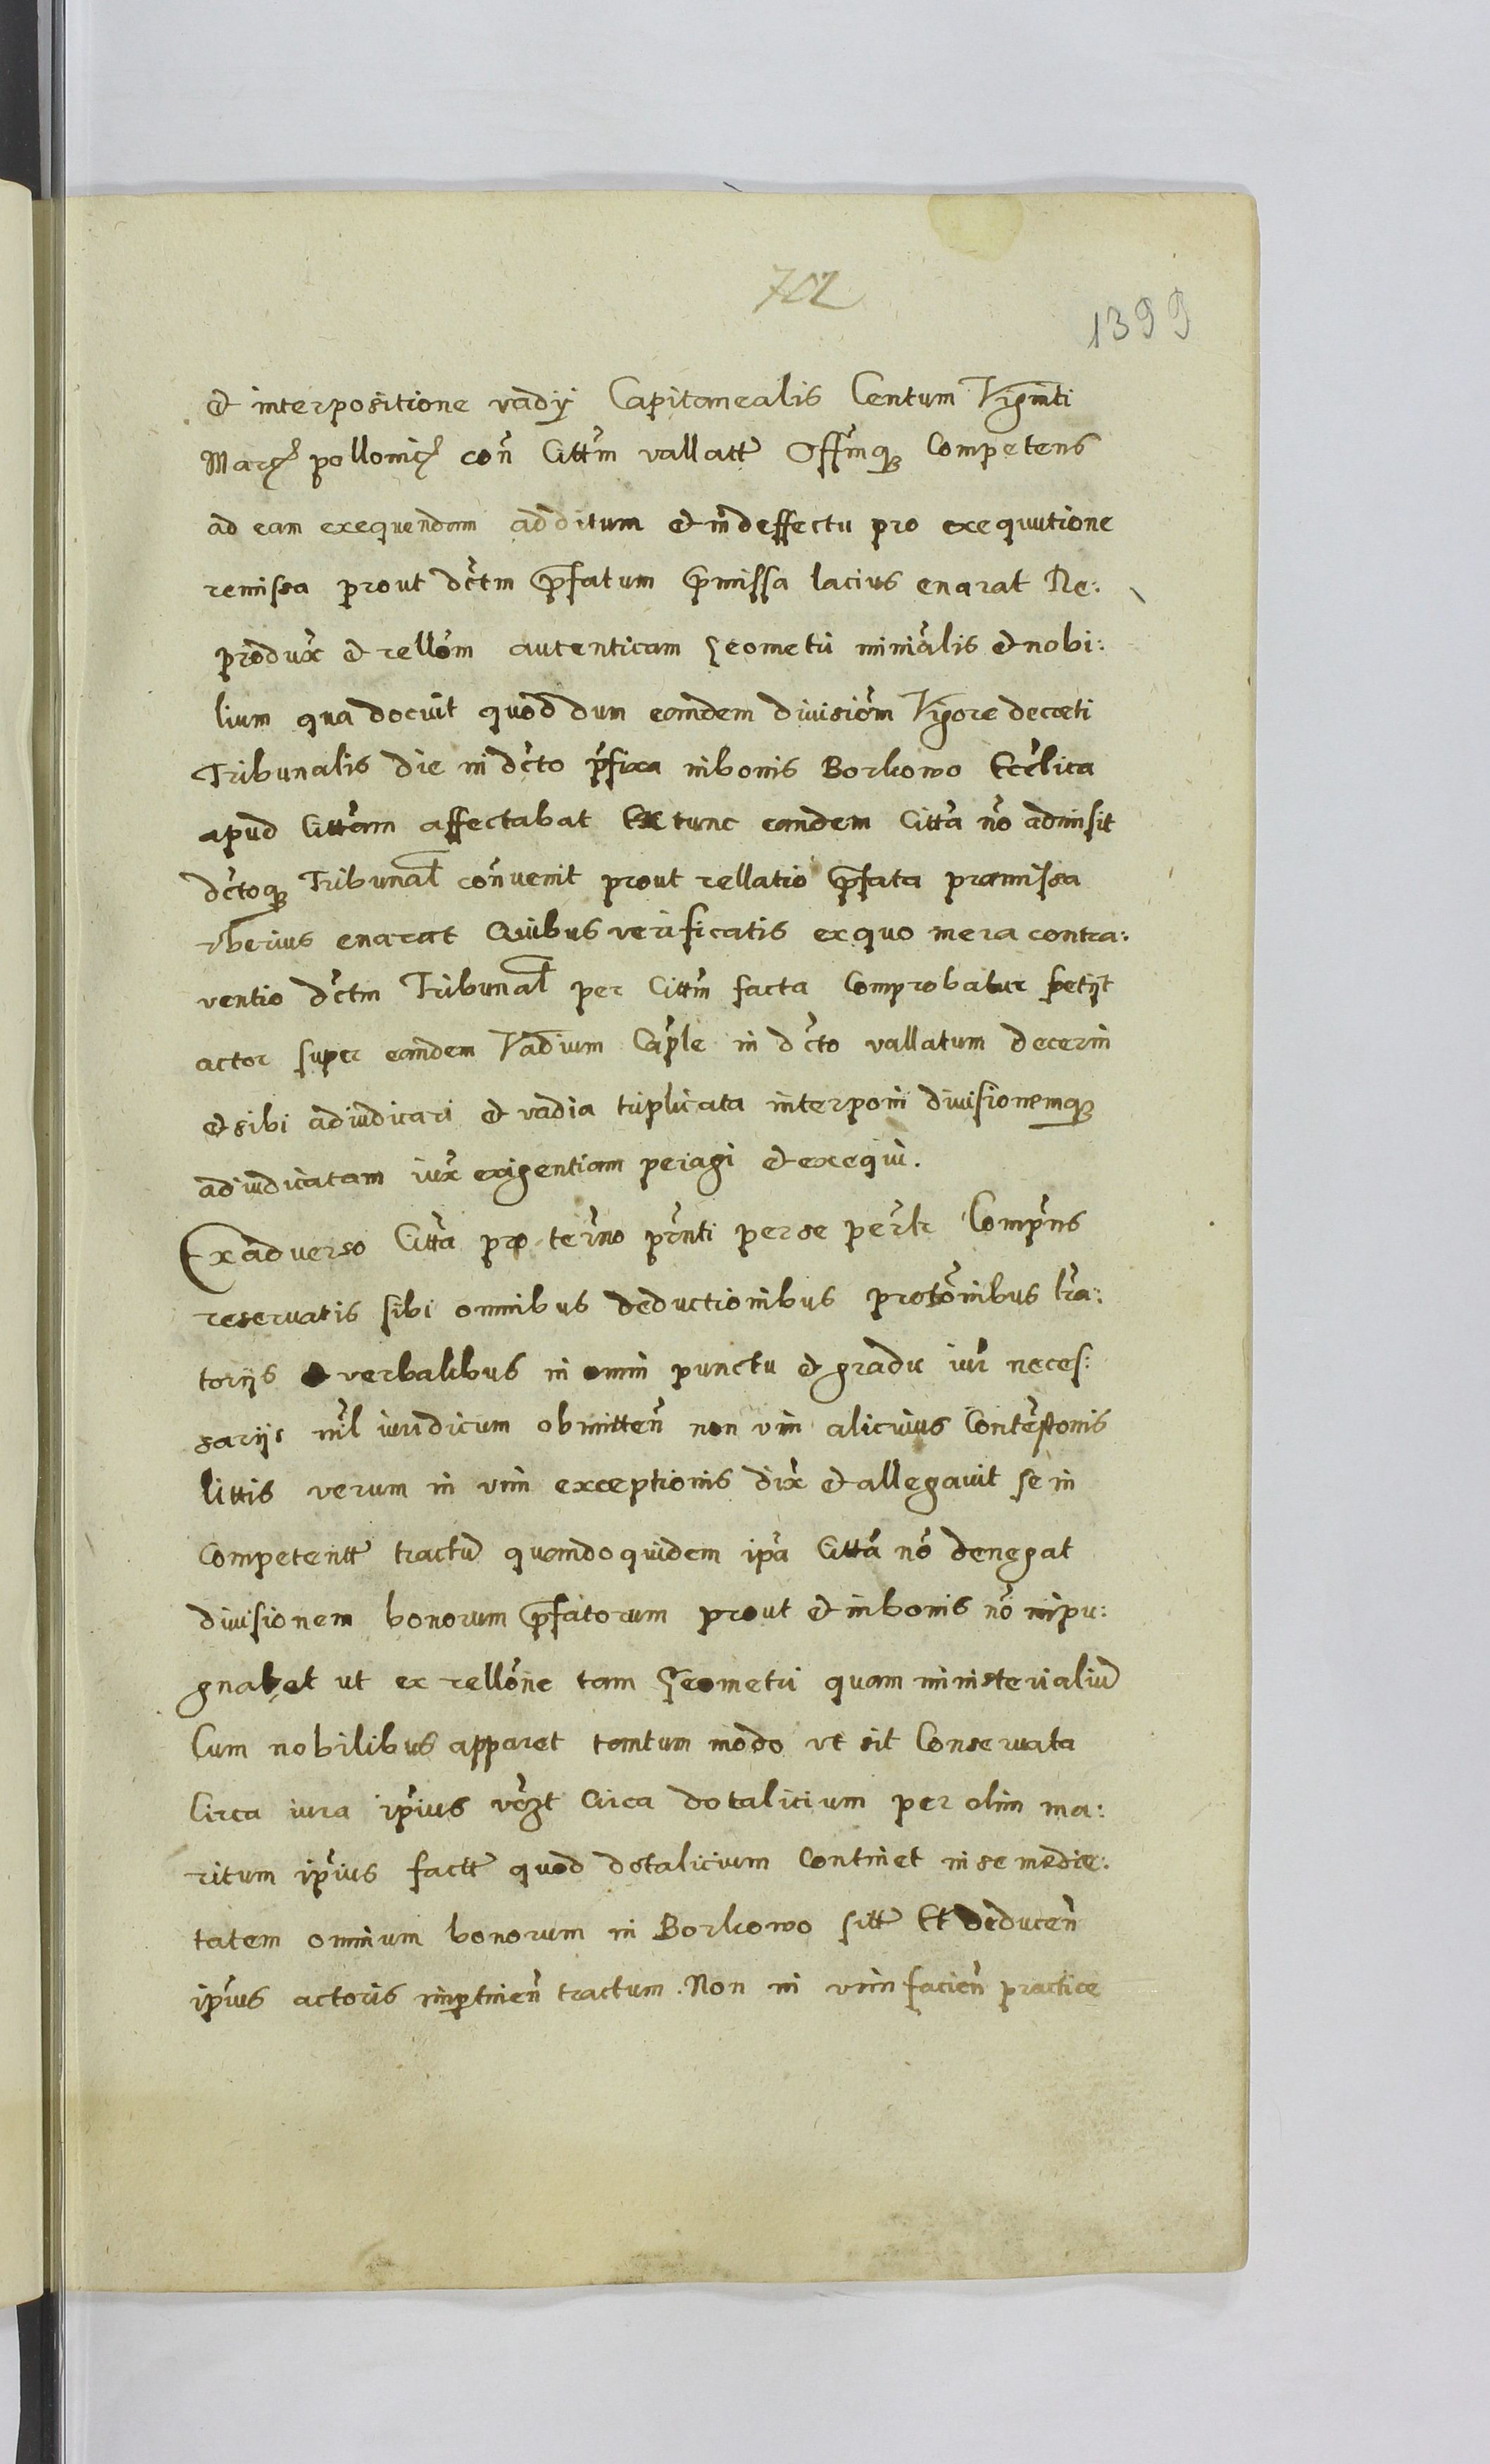 702
1399
et interpositione vadÿ Capitanealis Centum Viginti
Marcs pollonics con̄ Citt̄m vallatt Offīmq competens
ad eam exequendam additum et in deffectu pro exequutione
remissa prout dc̄tm p̄fatum p̄missa lacius enarat Re:
produx̄ et rellōm autenticam Geometri miniālis et nobi:
lium qua docuit quod dum eandem divisiōm Vigore decreti
Tribunalis die in dc̄to p̄fixa in bonis Borkowo Ecclica
apud Citt̄am affectabat Ex tunc eandem Citt̄a nō admisit
dc̄toq Tribunal convenit prout rellatio p̄fata pramissa
uberius enarat Quibus verificatis ex quo mera contra:
ventio dc̄tm Tribunal per Citt̄m facta Comprobatur petÿt
actor super eandem Vadium Cap̄le in dc̄to vallatum decerni
et sibi adiudicari et vadia triplicata interponi divisionemq
adiudicatam iux̄ exigentiam peragi et exequi.
Ex adverso Citt̄a pro ter̄no pr̄nti per se per̄lr Comp̄ns
reservatis sibi omnibus deductionibus protōnibus lr̄a:
torÿs et verbalibus in omni punctu et gradu iur̄ neces:
sarÿs nīl iuridicum obmitten̄ non vim alicuius Contēstonis
littis verum in vim exceptionis dix̄ et allegavit se in
competentt tractu quandoquidem ip̄a Citt̄a nō denegat
divisionem bonorum p̄fatorum prout et in bonis nō inpu:
gnabat ut ex rellōne tam Geometri quam ministerialiu
Cum nobilibus apparet tantum modo ut sit Conservata
Circa iura ip̄ius vc̄zt Circa dotalicium per olim ma:
ritum ip̄ius factt quod dotalicium Continet in se medie:
tatem omnium bonorum in Borkowo sitt Et deducen̄
ip̄ius actoris inp̄tinen̄ tractum. Non in vim facien̄ practice